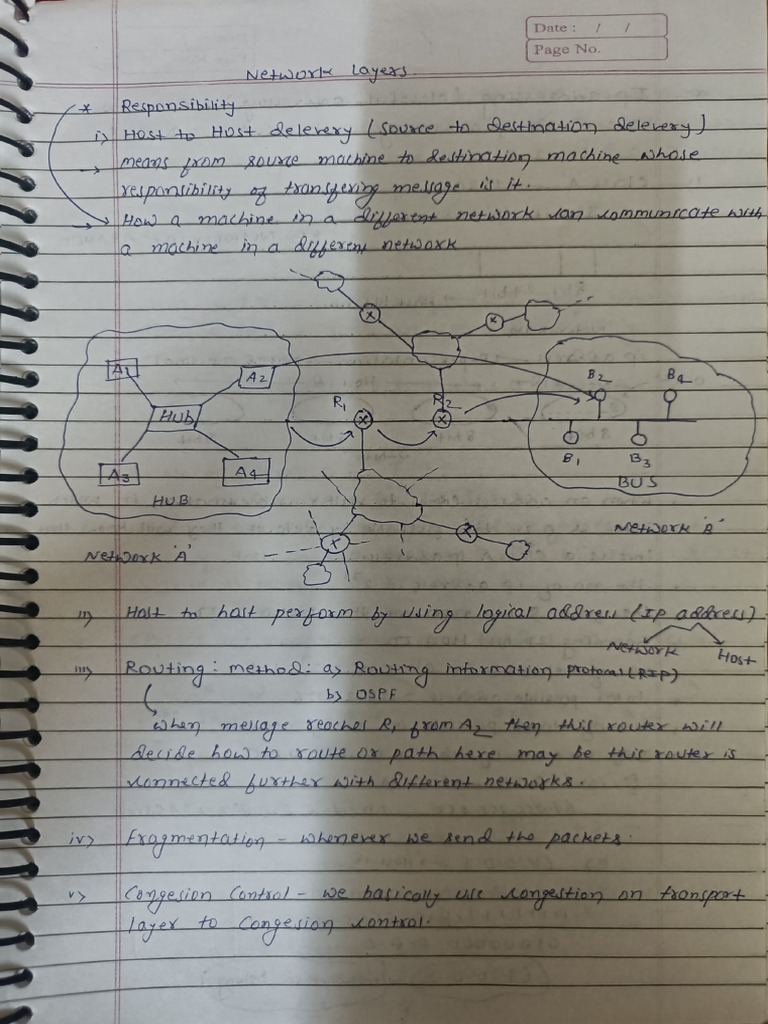 Date : / /
Page No.
Network Layers.
* Responsibility
i) Host to Host delevery (source to destination delevery)
→ means from source machine to destination machine whose
responsibility of transfering message is it.
→ How a machine in a different network can communicate with
a machine in a different network
A1
A2
HUb
A3
A4
HUB
Network 'A'
R1
R2
B2
B4
B1
B3
BUS
Network 'B'
ii) Host to host perform by using logical address (IP address)
Network Host
iii) Routing : method : a) Routing information protocol (RIP)
b) OSPF
when message reaches R1 from A2 then this router will
decide how to route or path here may be this router is
connected further with different networks.
iv) Fragmentation - whenever we send the packets.
v) Congesion Control - we basically use congestion on transport
layer to Congesion control.